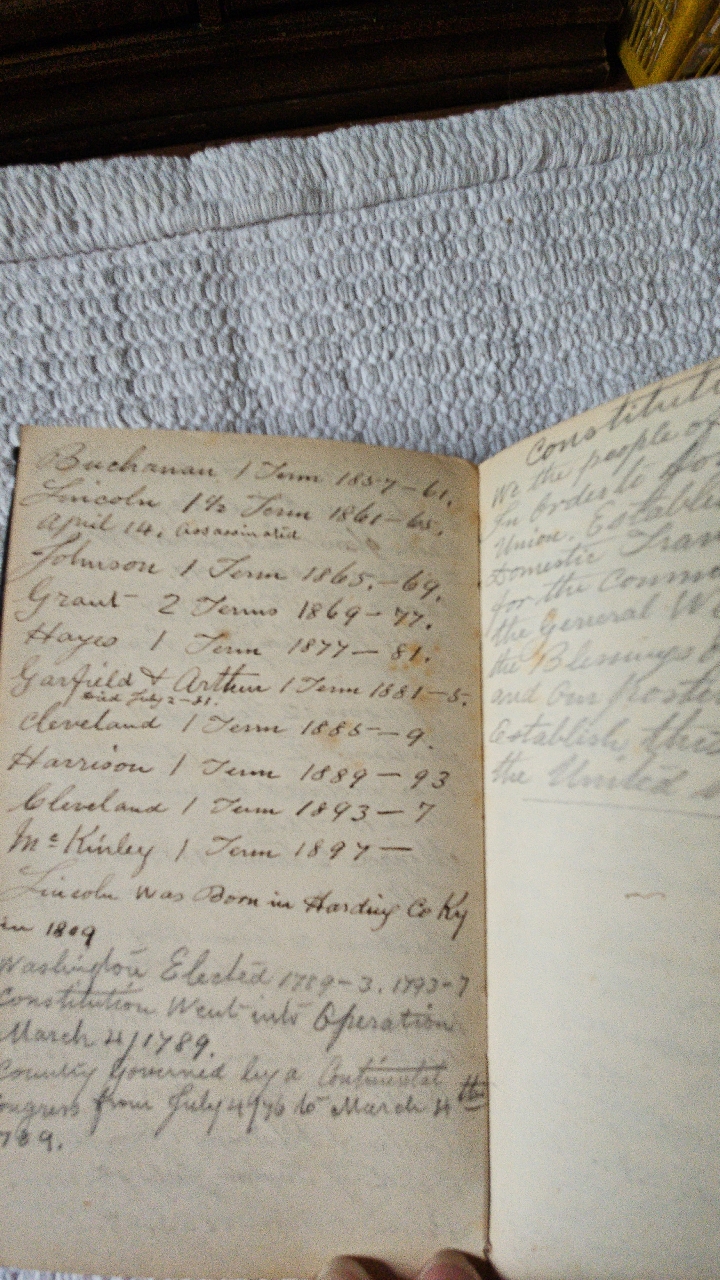 Buchanan 1 Term 1857-61.
Lincoln 1½ Term 1861-65.
April 14, assassinated
Johnson 1 Term 1865.-69.
Grant 2 Terms 1869-77.
Hayes 1 Term 1877-81.
Garfield & Arthur 1 Term 1881-5.
died July 2-81.
Cleveland 1 Term 1885-9.
Harrison 1 Term 1889-93
Cleveland 1 Term 1893-7
McKinley 1 Term 1897-
Lincoln was Born in Hardin Co Ky
in 1809
Washington Elected 1789-3. 1793-7
Constitution Went into Operation
March 4/1789.
Country Governed by a Continental
Congress from July 4 76 to March 4th
1789.
Constituti
We the people of
In Order to for
Union. Establis
Domestic Tran
for the Commo
the General We
the Blessings o
and Our Posteri
Establish, this
the United S